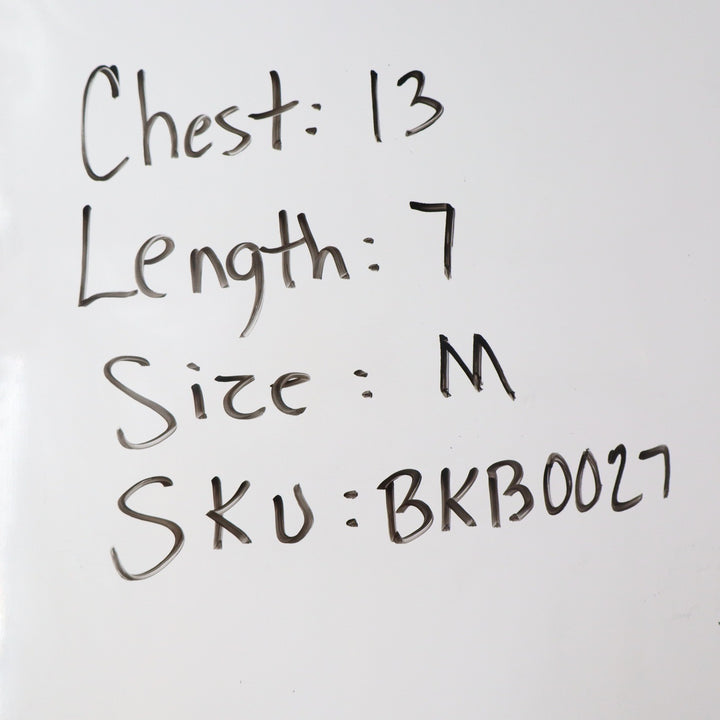 Chest: 13
Length: 7
Size: M
SKU: BKB0027